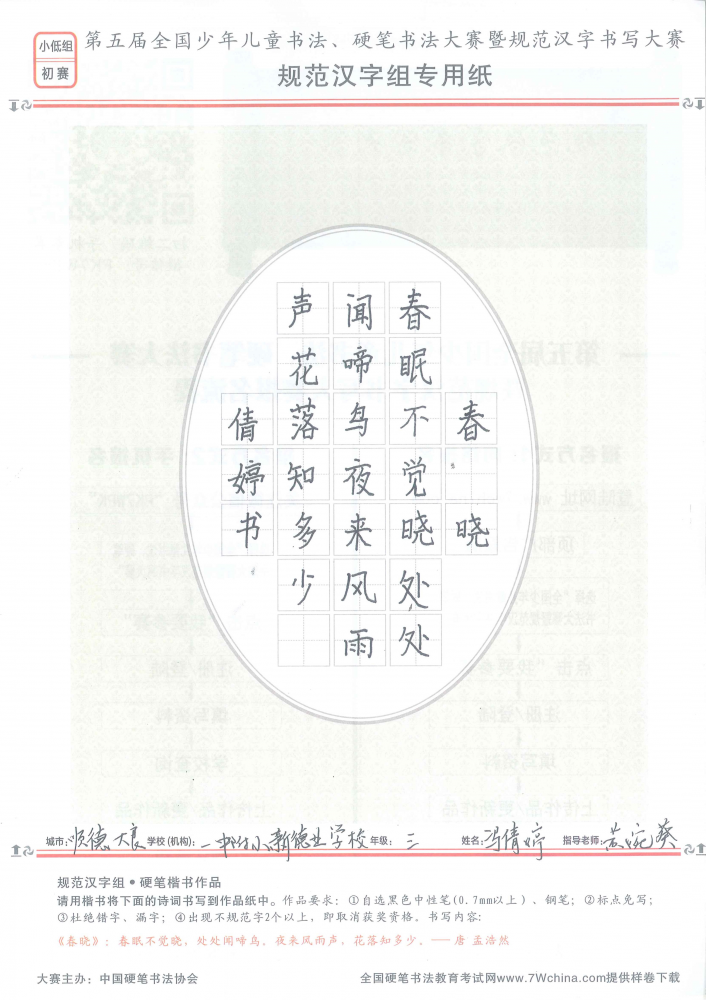 小低组
初赛
第五届全国少年儿童书法、硬笔书法大赛暨规范汉字书写大赛
规范汉字组专用纸
春晓
春眠不觉晓处处
闻啼鸟夜来风雨
声花落知多少
倩婷书
城市：顺德大良 学校（机构）：一中附小新德业学校 年级：三 姓名：冯倩婷 指导老师：苏婉葵
规范汉字组•硬笔楷书作品
请用楷书将下面的诗词书写到作品纸中。作品要求：①自选黑色中性笔(0.7mm以上)、钢笔；②标点免写；
③杜绝错字、漏字；④出现不规范字2个以上，即取消获奖资格。书写内容：
《春晓》：春眠不觉晓，处处闻啼鸟。夜来风雨声，花落知多少。——唐 孟浩然
大赛主办：中国硬笔书法协会
全国硬笔书法教育考试网www.7Wchina.com提供样卷下载